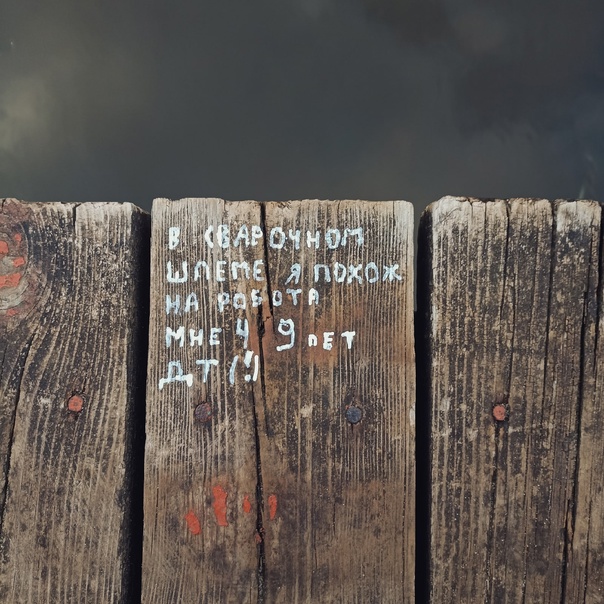 В СВАРОЧНОМ
ШЛЕМЕ Я ПОХОЖ
НА РОБОТА
МНЕ 4 9 ЛЕТ
ДТ(!)